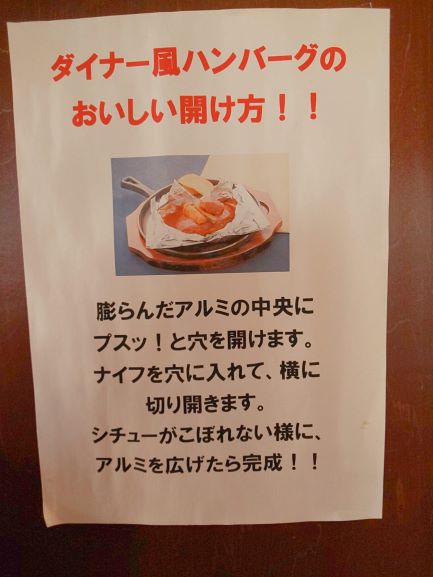 ダイナー風ハンバーグの
おいしい開け方！！
膨らんだアルミの中央に
プスッ！と穴を開けます。
ナイフを穴に入れて、横に
切り開きます。
シチューがこぼれない様に、
アルミを広げたら完成！！